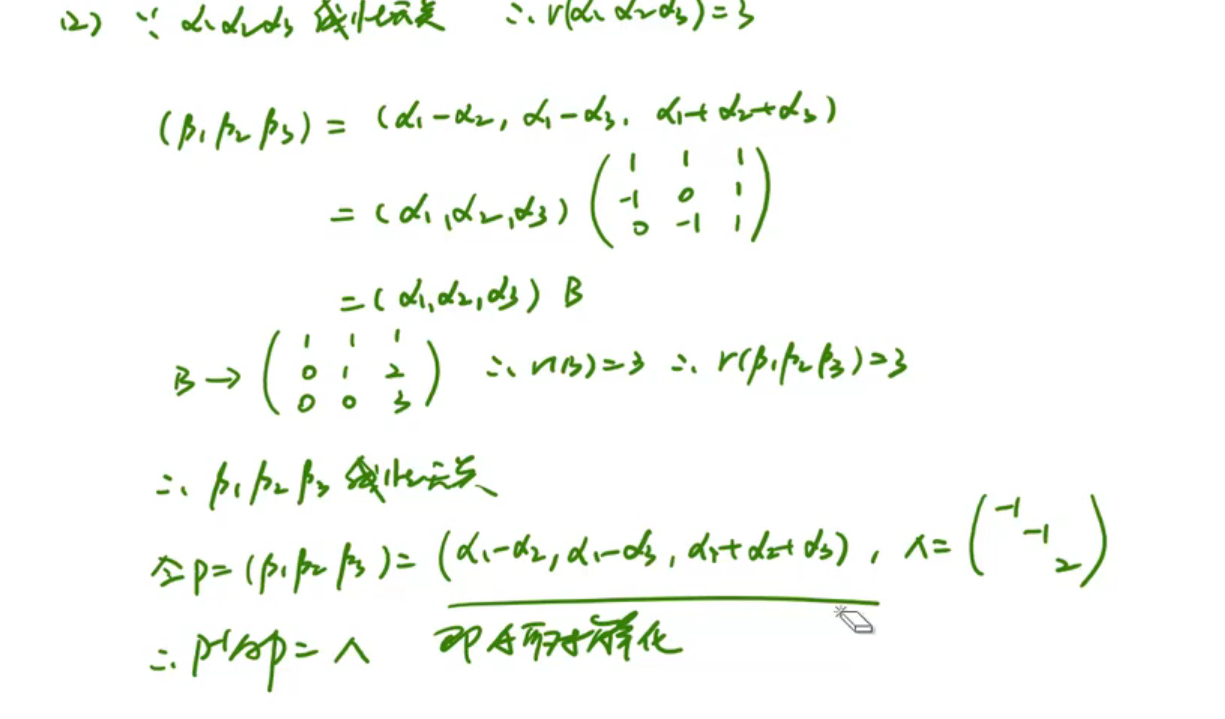 (2) ∵ α₁α₂α₃ 线性无关 ∴ r(α₁ α₂ α₃) = 3
(β₁ β₂ β₃) = (α₁-α₂, α₁-α₃, α₁+α₂+α₃)
= (α₁, α₂, α₃) ( 1 1 1
-1 0 1
0 -1 1 )
= (α₁, α₂, α₃) B
B → ( 1 1 1
0 1 2
0 0 3 ) ∴ r(B) = 3 ∴ r(β₁β₂β₃) = 3
∴ β₁ β₂ β₃ 线性无关
令 P = (β₁β₂ β₃) = (α₁-α₂, α₁-α₃, α₁+α₂+α₃), Λ = ( -1
-1
2 )
∴ P⁻¹AP = Λ 即A可对角化